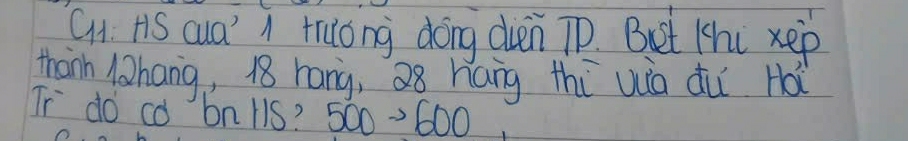 C11: HS của 1 trường đồng diễn TD. Biết khi xếp
thành 12 hàng, 18 hàng, 28 hàng thì vừa đủ. Hỏi
Tr đó có bn HS? 500 → 600